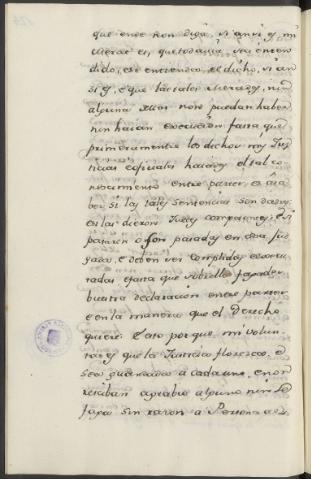 que ende non diga, si ansi es, mi
Merced es, que todavia sea enten
dido, e se entienda, el dicho, si an
si es, e que las tales Mercedes, nin
alguna dellas non se puedan haber
nin haian execucion fasta que
primeramente los dichos mis Jus
ticias e oficiales haian el tal co
nocimiento entre partes, es a sa
ber si las tales sentencias son dadas,
e si las dieron Jueces competentes, e si
pasaron o son pasadas en cosa juz
gada, e deben ser complidas e execu
tadas e fasta que sobre ello fagades
buestra declaracion entre partes
e en la manera que el derecho
quiere. E esto por que mi volun
tad es que la Justicia floresca, e
sea guardada a cada uno, e non
reciban agrabio alguno nin se
faga sin razon a Persona al